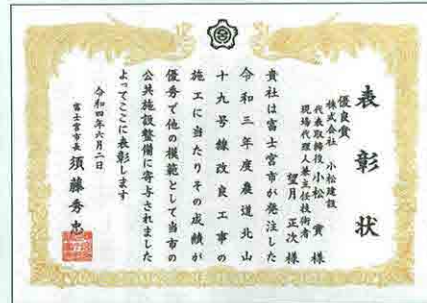 表彰状
優良賞
株式会社 小松建設
代表取締役 小松 貴 様
現場代理人兼主任技術者
望月 正次 様
貴社は富士宮市が発注した
令和三年度農道北山
十九号線改良工事の
施工に当たりその成績が
優秀で他の模範として当市の
公共施設整備に寄与されました
よってここに表彰します
令和四年六月二日
富士宮市長 須藤秀忠